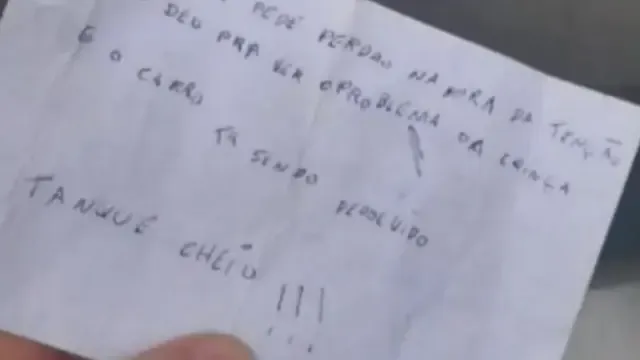 PEDE PERDÃO NA HORA DA TENÇÃO
DEU PRA VER O PROBLEMA DA CRIANÇA
E O CARRO TA SENDO DEVOLVIDO
TANQUE CHEIO !!!